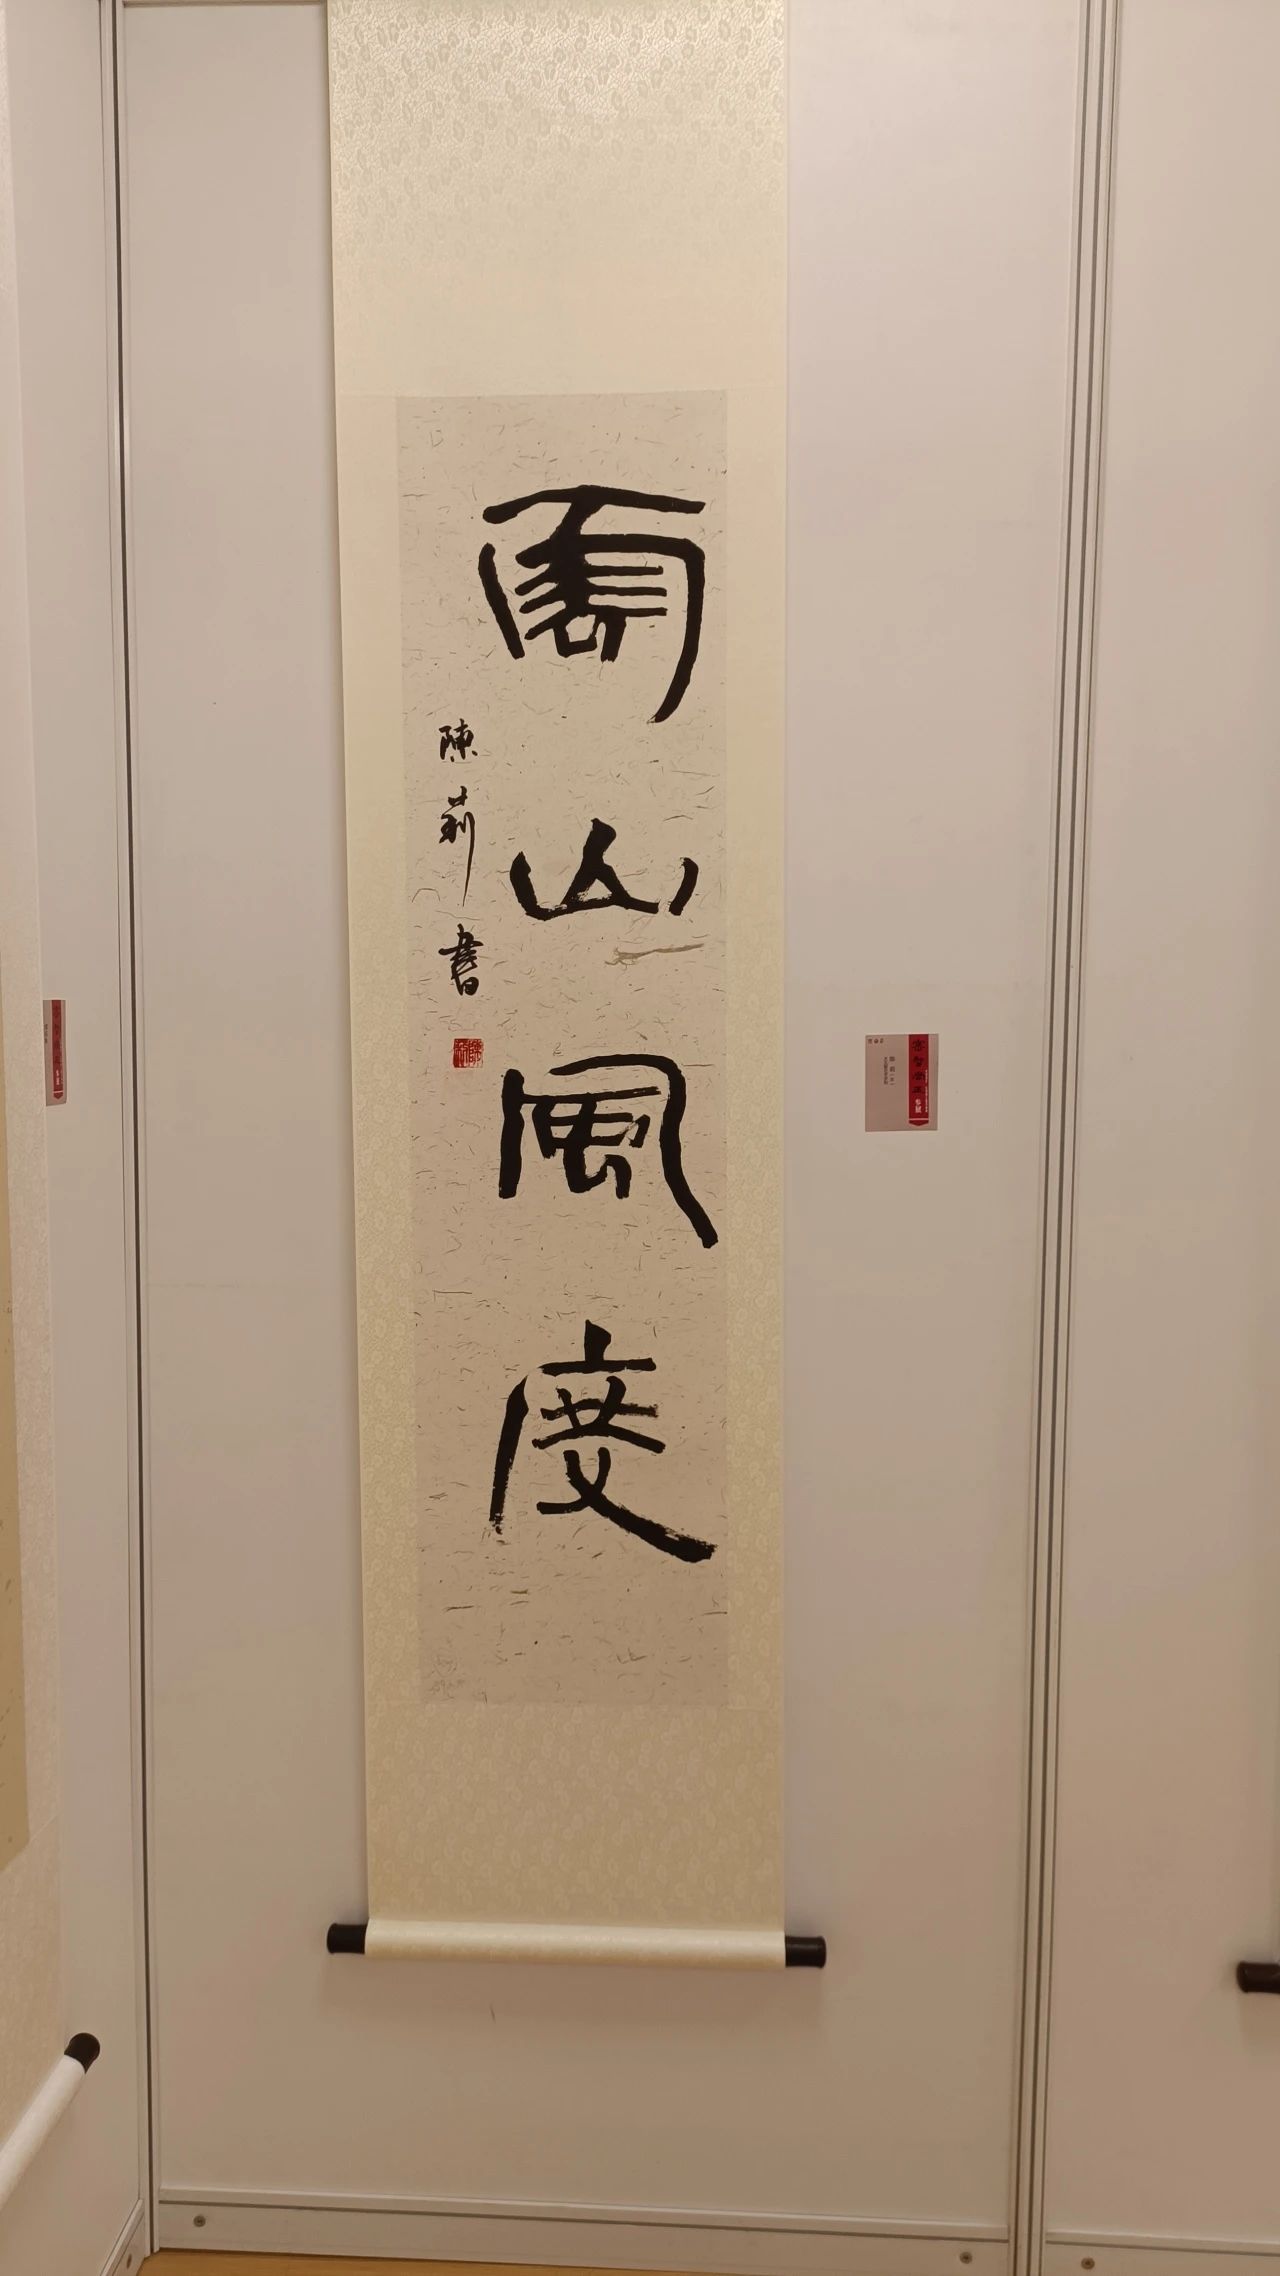 雲山風度
陳莉書